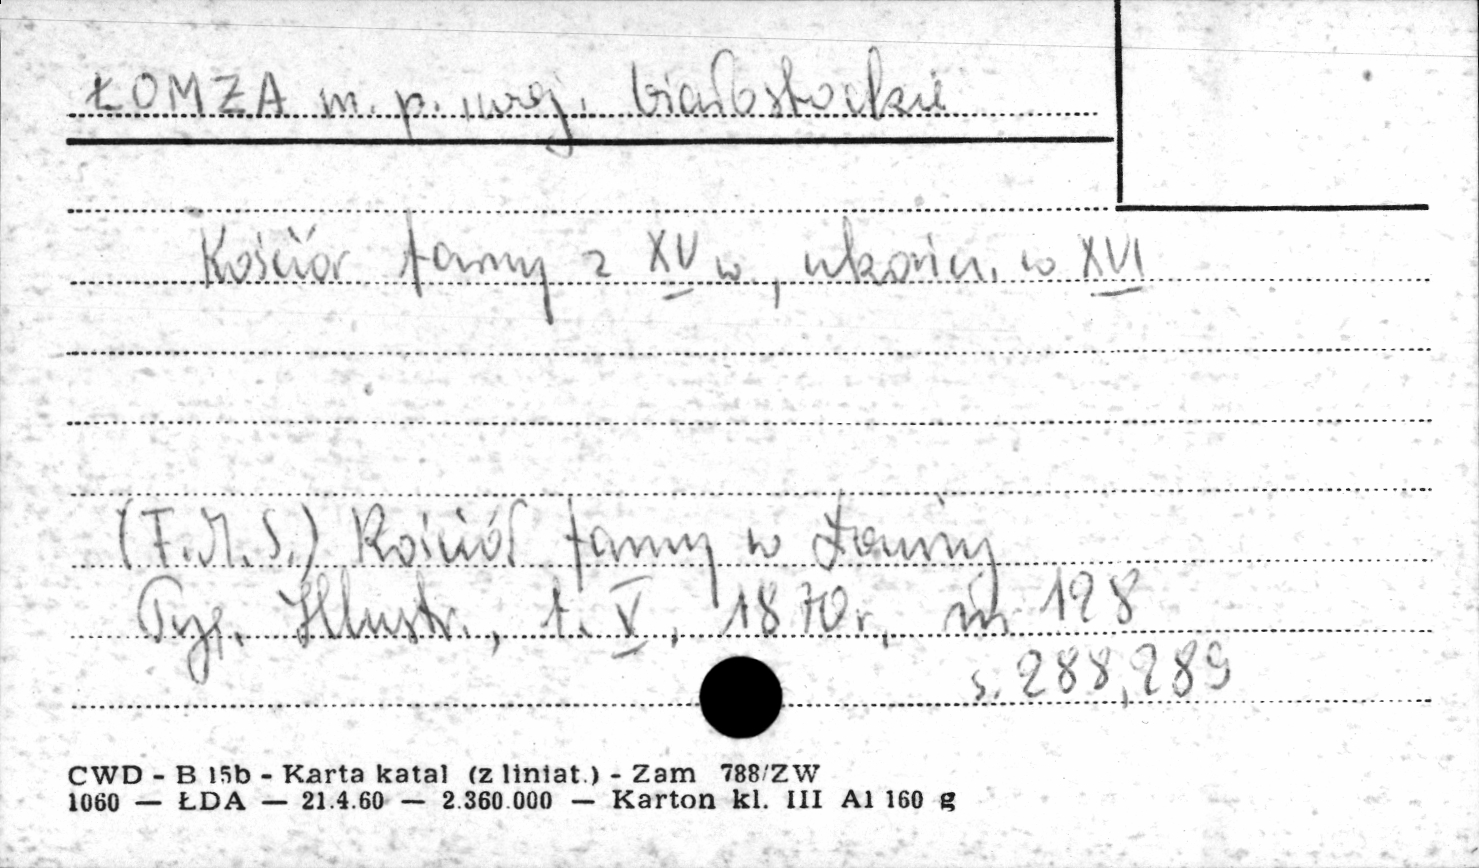 ŁOMŻA m. p. woj. białostockie
Kościół farny z XV w., ukończ. w XVI
(F.M.S.) Kościół farny w Łomży
Tyg. Illustr., t. V, 1870 r., nr 128
s. 288, 289
CWD - B 15b - Karta katal (z liniat.) - Zam 788/ZW
1060 — ŁDA — 21.4.60 — 2.360.000 — Karton kl. III A1 160 g